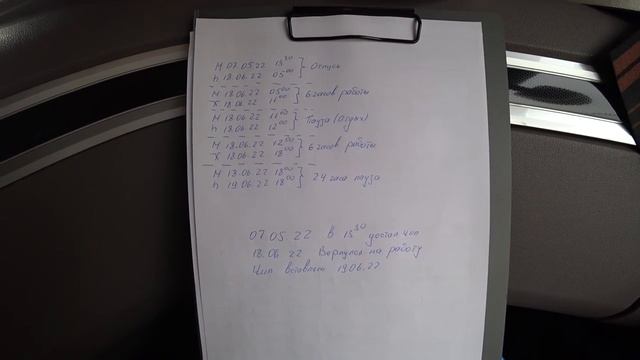 М 07.05.22 13³⁰ } Отпуск
К 18.06.22 05⁰⁰
М 18.06.22 05⁰⁰ } 6 часов работы
К 18.06.22 11⁰⁰
М 18.06.22 11⁰⁰ } Пауза (Отдых)
К 18.06.22 12⁰⁰
М 18.06.22 12⁰⁰ } 6 часов работы
К 18.06.22 18⁰⁰
М 18.06.22 18⁰⁰ } 24 часа пауза
К 19.06.22 18⁰⁰
07.05.22 в 13³⁰ достал чип
18.06 22 Вернулся на работу
Чип вставлен 19.06.22